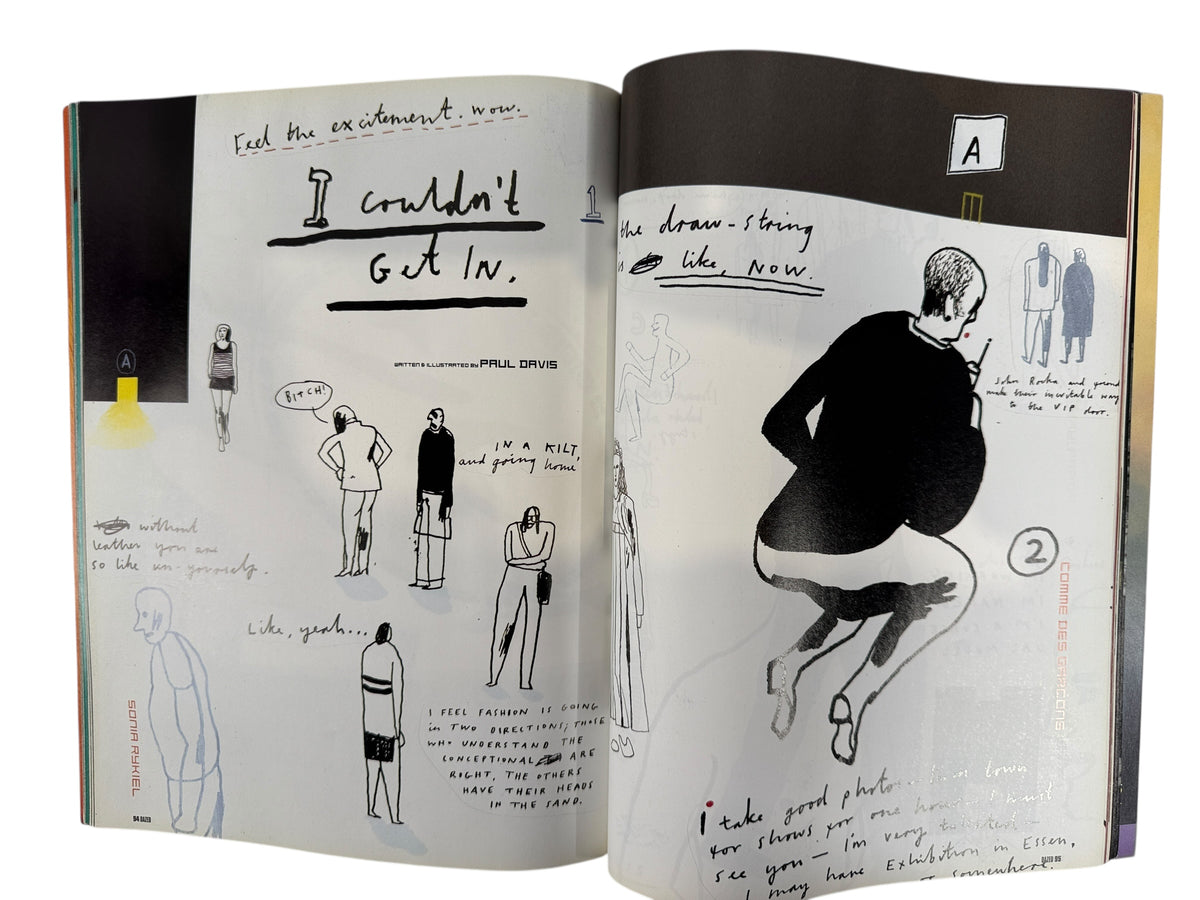 Feel the excitement. wow.
I couldn't
Get IN.
1
WRITTEN & ILLUSTRATED BY PAUL DAVIS
A
BITCH!
IN A KILT,
and going home
without
leather you are
so like un-yourself.
Like, yeah...
I FEEL FASHION IS GOING
in TWO DIRECTIONS; THOSE
WHO UNDERSTAND THE
CONCEPTIONAL ARE
RIGHT, THE OTHERS
HAVE THEIR HEADS
IN THE SAND.
SONIA RYKIEL
94 DAZED
A
the draw-string
is like, NOW.
John Rocha and friend
make their inevitable way
to the VIP door.
2
COMME DES GARCONS
OY
i take good photo
for shows for one hour I must
see you - I'm very
I may have Exhibition in Essen,
somewhere.
DAZED 95